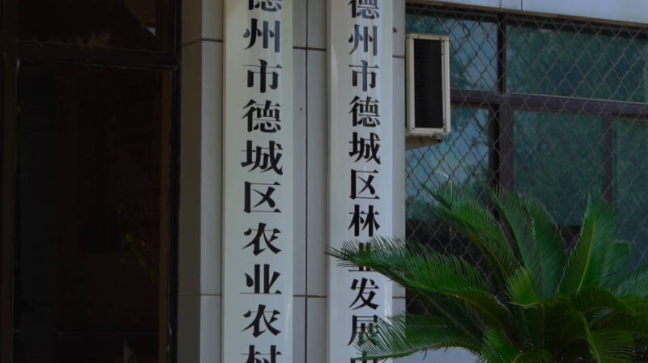 德州市德城区农业农村
德州市德城区林业发展